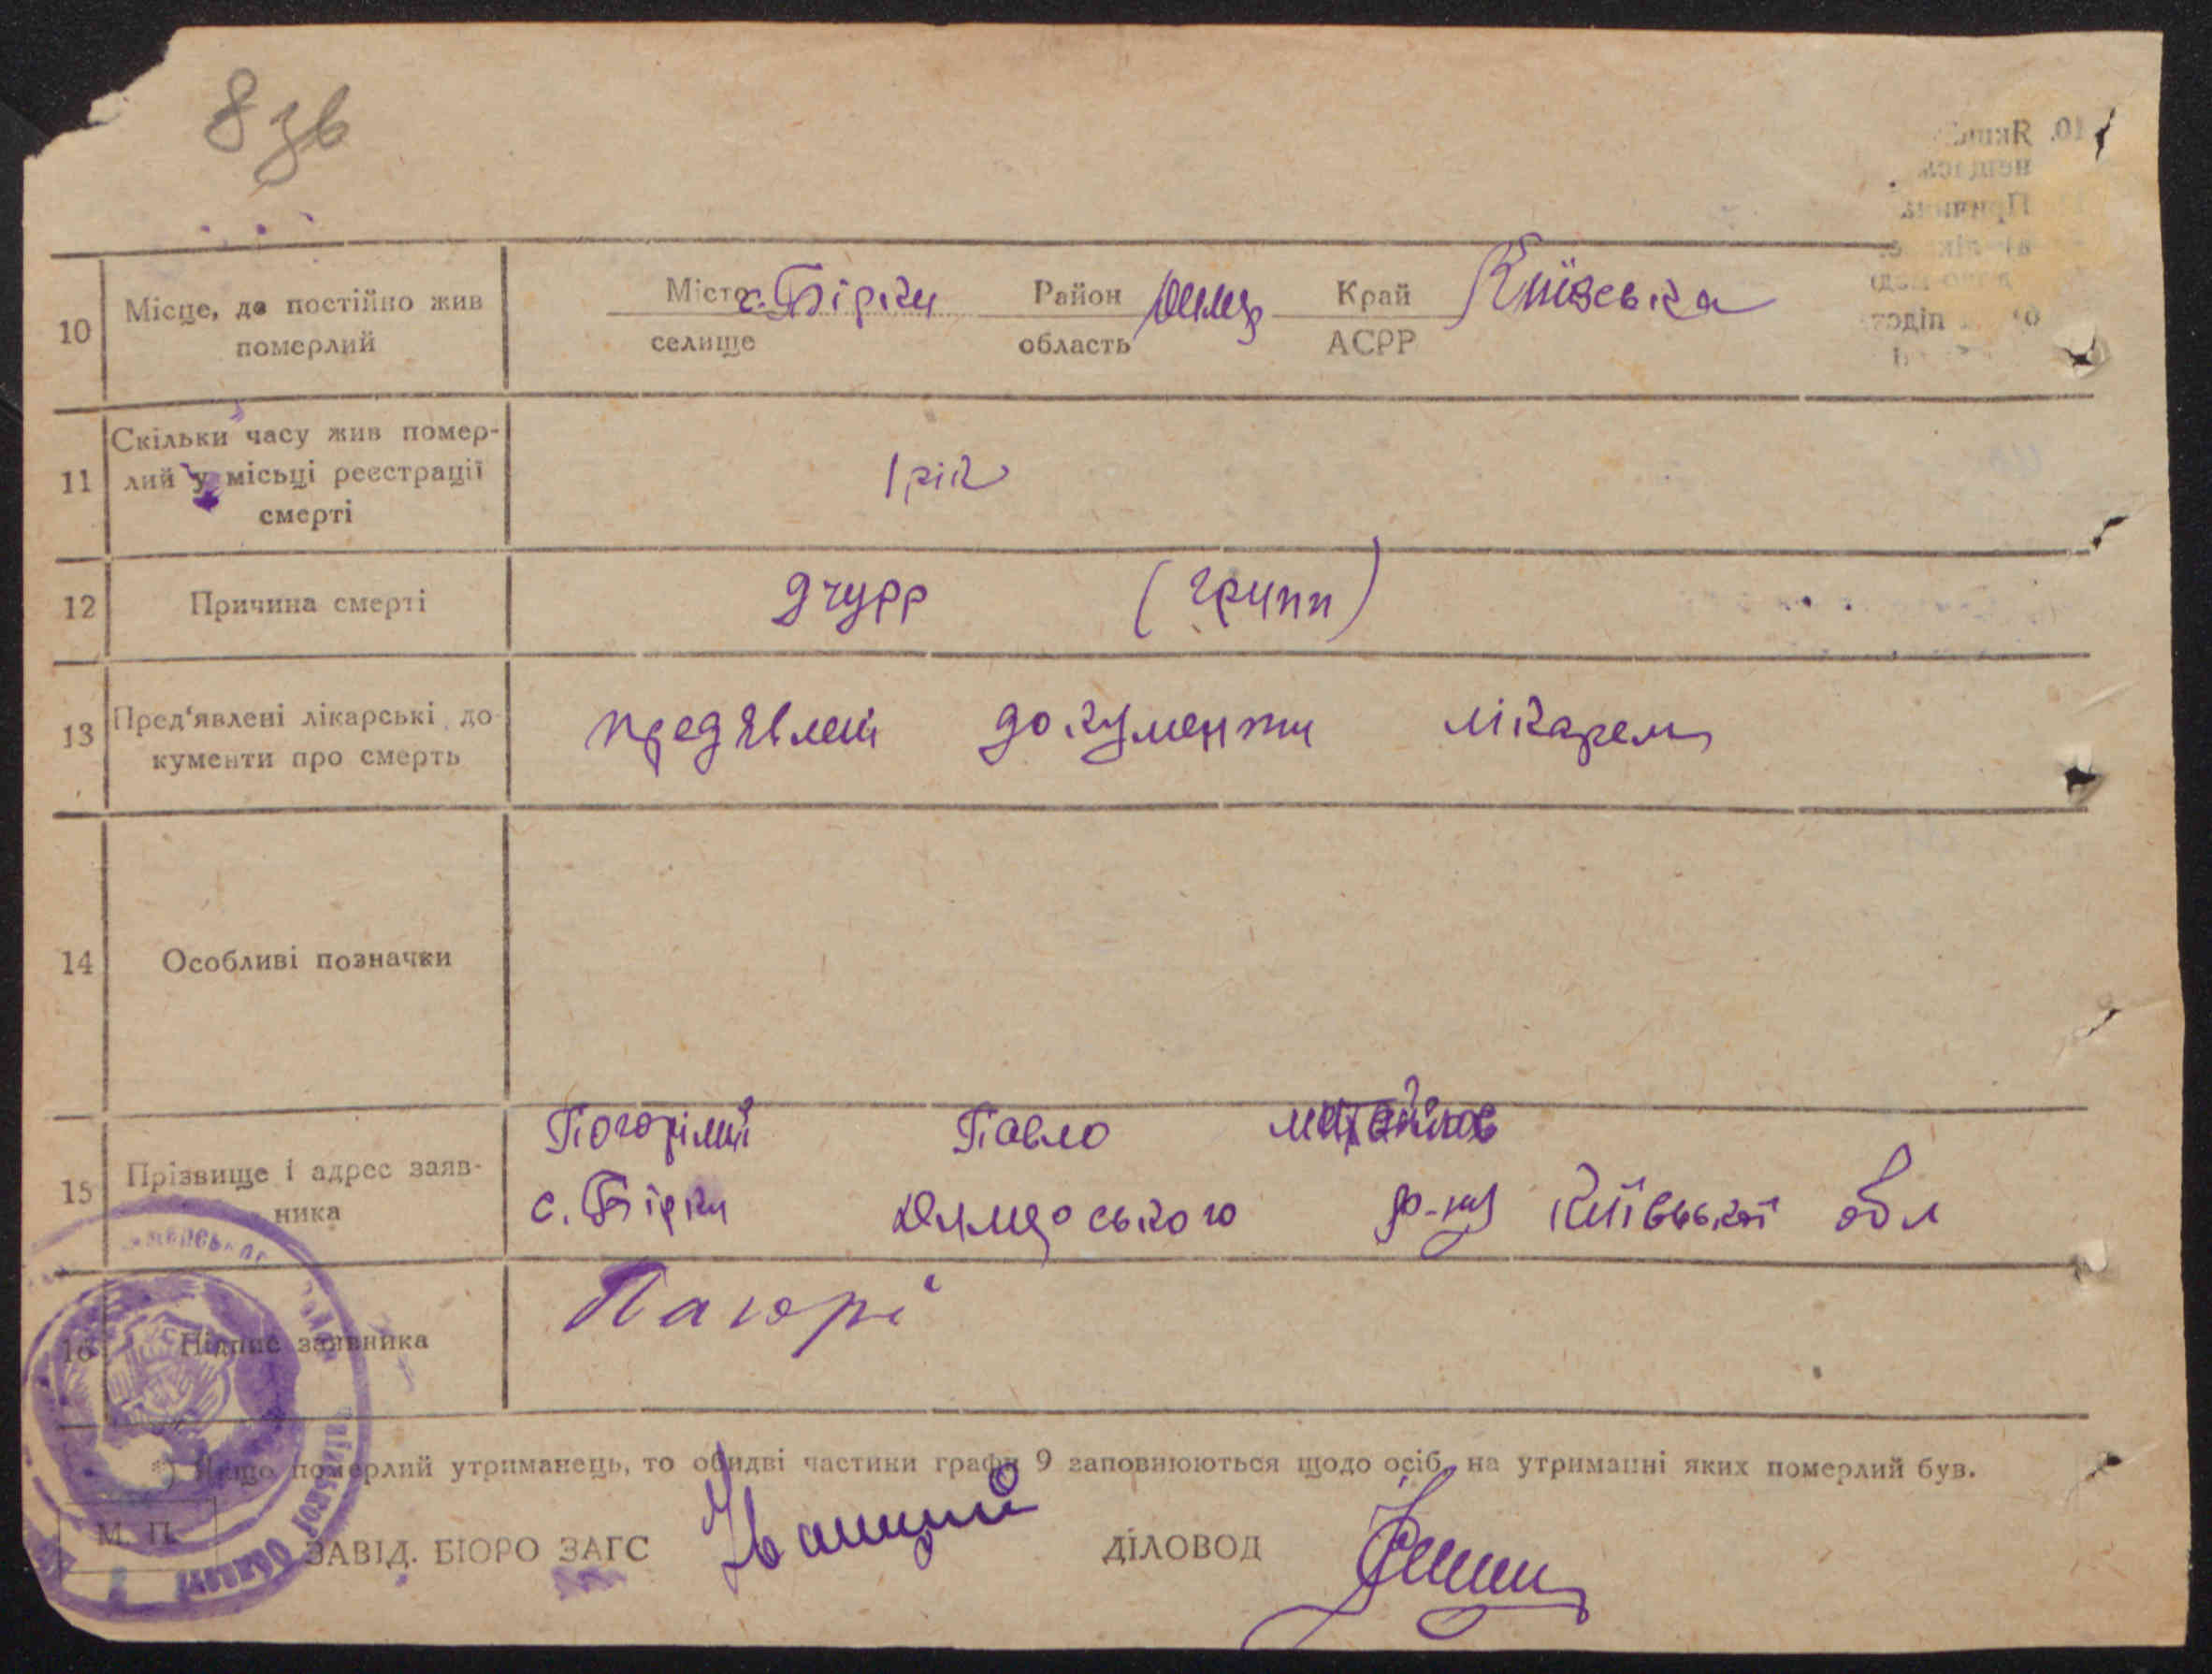 8 зв
10 Місце, де постійно жив померлий
Місто с. Бірки Район Димер Край Київська
селище область АСРР
11 Скільки часу жив помер-
лий у місці реєстрації
смерті
1 рік
12 Причина смерті
(грипп)
13 Пред'явлені лікарські до-
кументи про смерть
предявлені документи лікарем
14 Особливі позначки
15 Прізвище і адрес заяв-
ника
Погорілий Павло
с. Бірки Димерського р-ну Київської обл
16 Підпис заявника
Пагорі
*) Якщо померлий утриманець, то обидві частини графи 9 заповнюються щодо осіб, на утриманні яких померлий був.
М. П.
ЗАВІД. БЮРО ЗАГС ДІЛОВОД